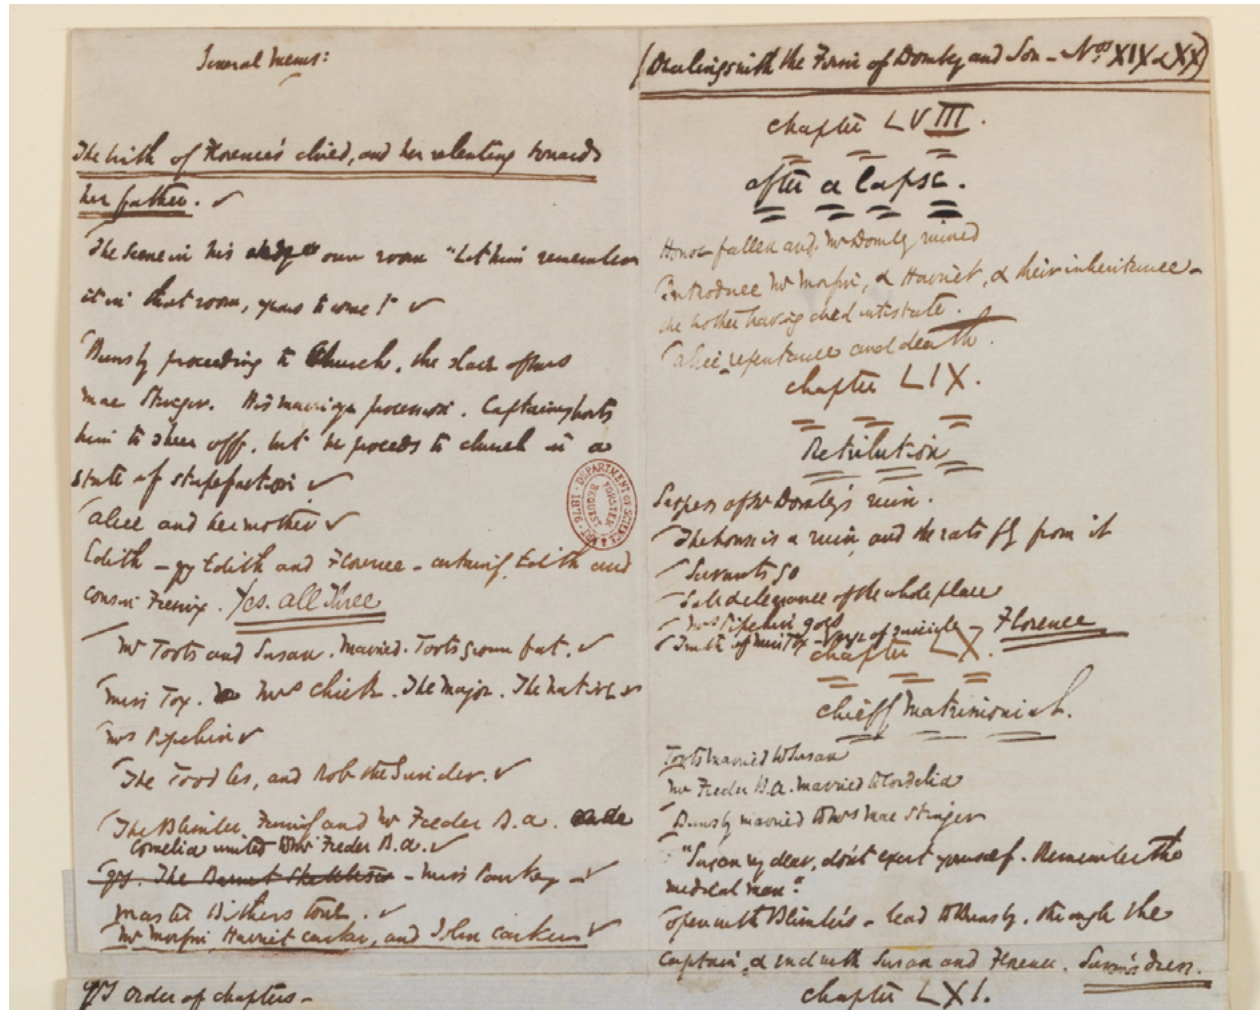 General Mems:
The birth of Florence's child, and her relenting towards
her father. ✓
The scene in his own room "Let him remember
it in that room, years to come!" ✓
Bunsby proceeding to Church, the slave of Mrs
Mac Stinger. His marriage procession. Captain exhorts
him to sheer off, but he proceeds to church in a
state of stupefaction ✓
Alice and her mother ✓
Edith - qy Edith and Florence - outring Edith and
Cousin Feenix. Yes. all three
Mr Toots and Susan. Married. Toots grown fat. ✓
Miss Tox. Mrs Chick. The Major. The Native ✓
Mrs Pipchin ✓
The Toodles, and Rob the Grinder. ✓
The Blimber Family and Mr Feeder B.A.
Cornelia united to Mr Feeder B.A. ✓
qy. The Barnet Skettleses - Miss Pankey - ✓
Master Bitherstone. ✓
Mr Morfin, Harriet Carker, and John Carker ✓
qy Order of chapters -
(Dealings with the Firm of Dombey and Son - Nos XIX & XX)
chapter LVIII.
After a lapse.
House fallen and Mr Dombey ruined
Introduce Mr Morfin, & Harriet, & their inheritance -
the brother having died intestate.
Alice, repentance and death.
chapter LIX.
Retribution
Progress of Mr Dombey's ruin.
The house is a ruin, and the rats fly from it
Servants go
Sale & clearance of the whole place
Mrs Pipchin goes
Truth of Miss Tox - Verge of suicide - Florence
chapter LX.
Chiefly Matrimonial.
Toots married to Susan
Mr Feeder B.A. married to Cordelia
Bunsby married to Mrs Mac Stinger
"Susan my dear, don't exert yourself. Remember the
medical man."
open with Blimber's - lead to Bunsby, through the
Captain, & end with Susan and Florence. Susan's dress.
chapter LXI.
DEPARTMENT OF SCIENCE & ART · 1876
FORSTER BEQUEST